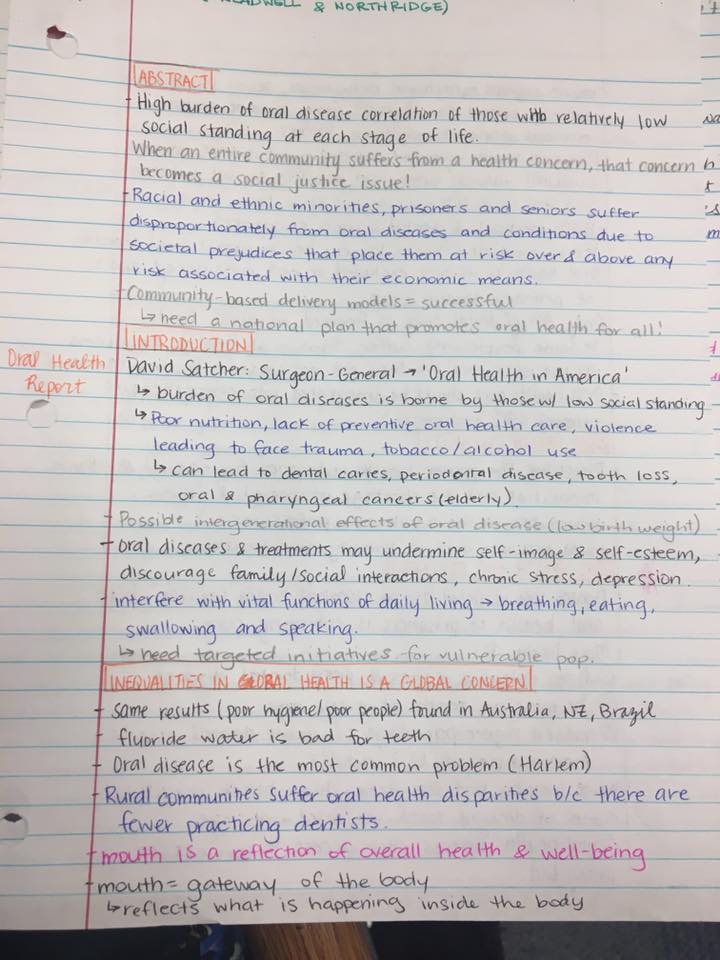 & NORTHRIDGE)
ABSTRACT
- High burden of oral disease correlation of those with relatively low
social standing at each stage of life.
When an entire community suffers from a health concern, that concern
becomes a social justice issue!
- Racial and ethnic minorities, prisoners and seniors suffer
disproportionately from oral diseases and conditions due to
societal prejudices that place them at risk over & above any
risk associated with their economic means.
- Community-based delivery models = successful
↳ need a national plan that promotes oral health for all!
INTRODUCTION
Oral Health
Report
David Satcher: Surgeon-General → 'Oral Health in America'
↳ burden of oral diseases is borne by those w/ low social standing
↳ Poor nutrition, lack of preventive oral health care, violence
leading to face trauma, tobacco/alcohol use
↳ can lead to dental caries, periodontal disease, tooth loss,
oral & pharyngeal cancers (elderly).
- Possible intergenerational effects of oral disease (low birth weight)
- Oral diseases & treatments may undermine self-image & self-esteem,
discourage family/social interactions, chronic stress, depression.
- interfere with vital functions of daily living → breathing, eating,
swallowing and speaking.
↳ need targeted initiatives for vulnerable pop.
INEQUALITIES IN ORAL HEALTH IS A GLOBAL CONCERN
- Same results (poor hygiene/poor people) found in Australia, NZ, Brazil
- fluoride water is bad for teeth
- Oral disease is the most common problem (Harlem)
- Rural communities suffer oral health disparities b/c there are
fewer practicing dentists.
- mouth is a reflection of overall health & well-being
- mouth = gateway of the body
↳ reflects what is happening inside the body